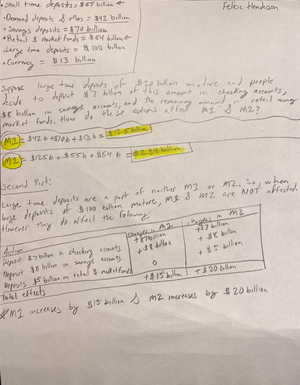 • small time deposits = $55 billion
Felicia Henderson
• Demand deposits & others = $42 billion
• Savings deposits = $70 billion
• Retail $ market funds = $54 billion
Large time deposits = $100 billion
• Currency = $13 billion
Suppose large time deposits of $20 billion mature and people
decide to deposit $7 billion of this amount in checking accounts,
$8 billion in savings accounts, and the remaining amount in retail money
market funds. How do these actions affect M1 & M2?
M1 = $42b + $70b + $13b = $125 billion
M2 = $125b + $55b + $54b = $234 billion
Second Part:
Large time deposits are a part of neither M1 or M2. So, when
large deposits of $100 billion mature, M1 & M2 are NOT affected.
However they do affect the following:
Action Changes in M1 Changes in M2
Deposit $7 billion in checking accounts +$7 billion +$7 billion
Deposit $8 billion in savings accounts +$8 billion +$8 billion
Deposits $5 billion in retail $ market funds 0 +$5 billion
Total effects +$15 billion +$20 billion
M1 increases by $15 billion & M2 increases by $20 billion